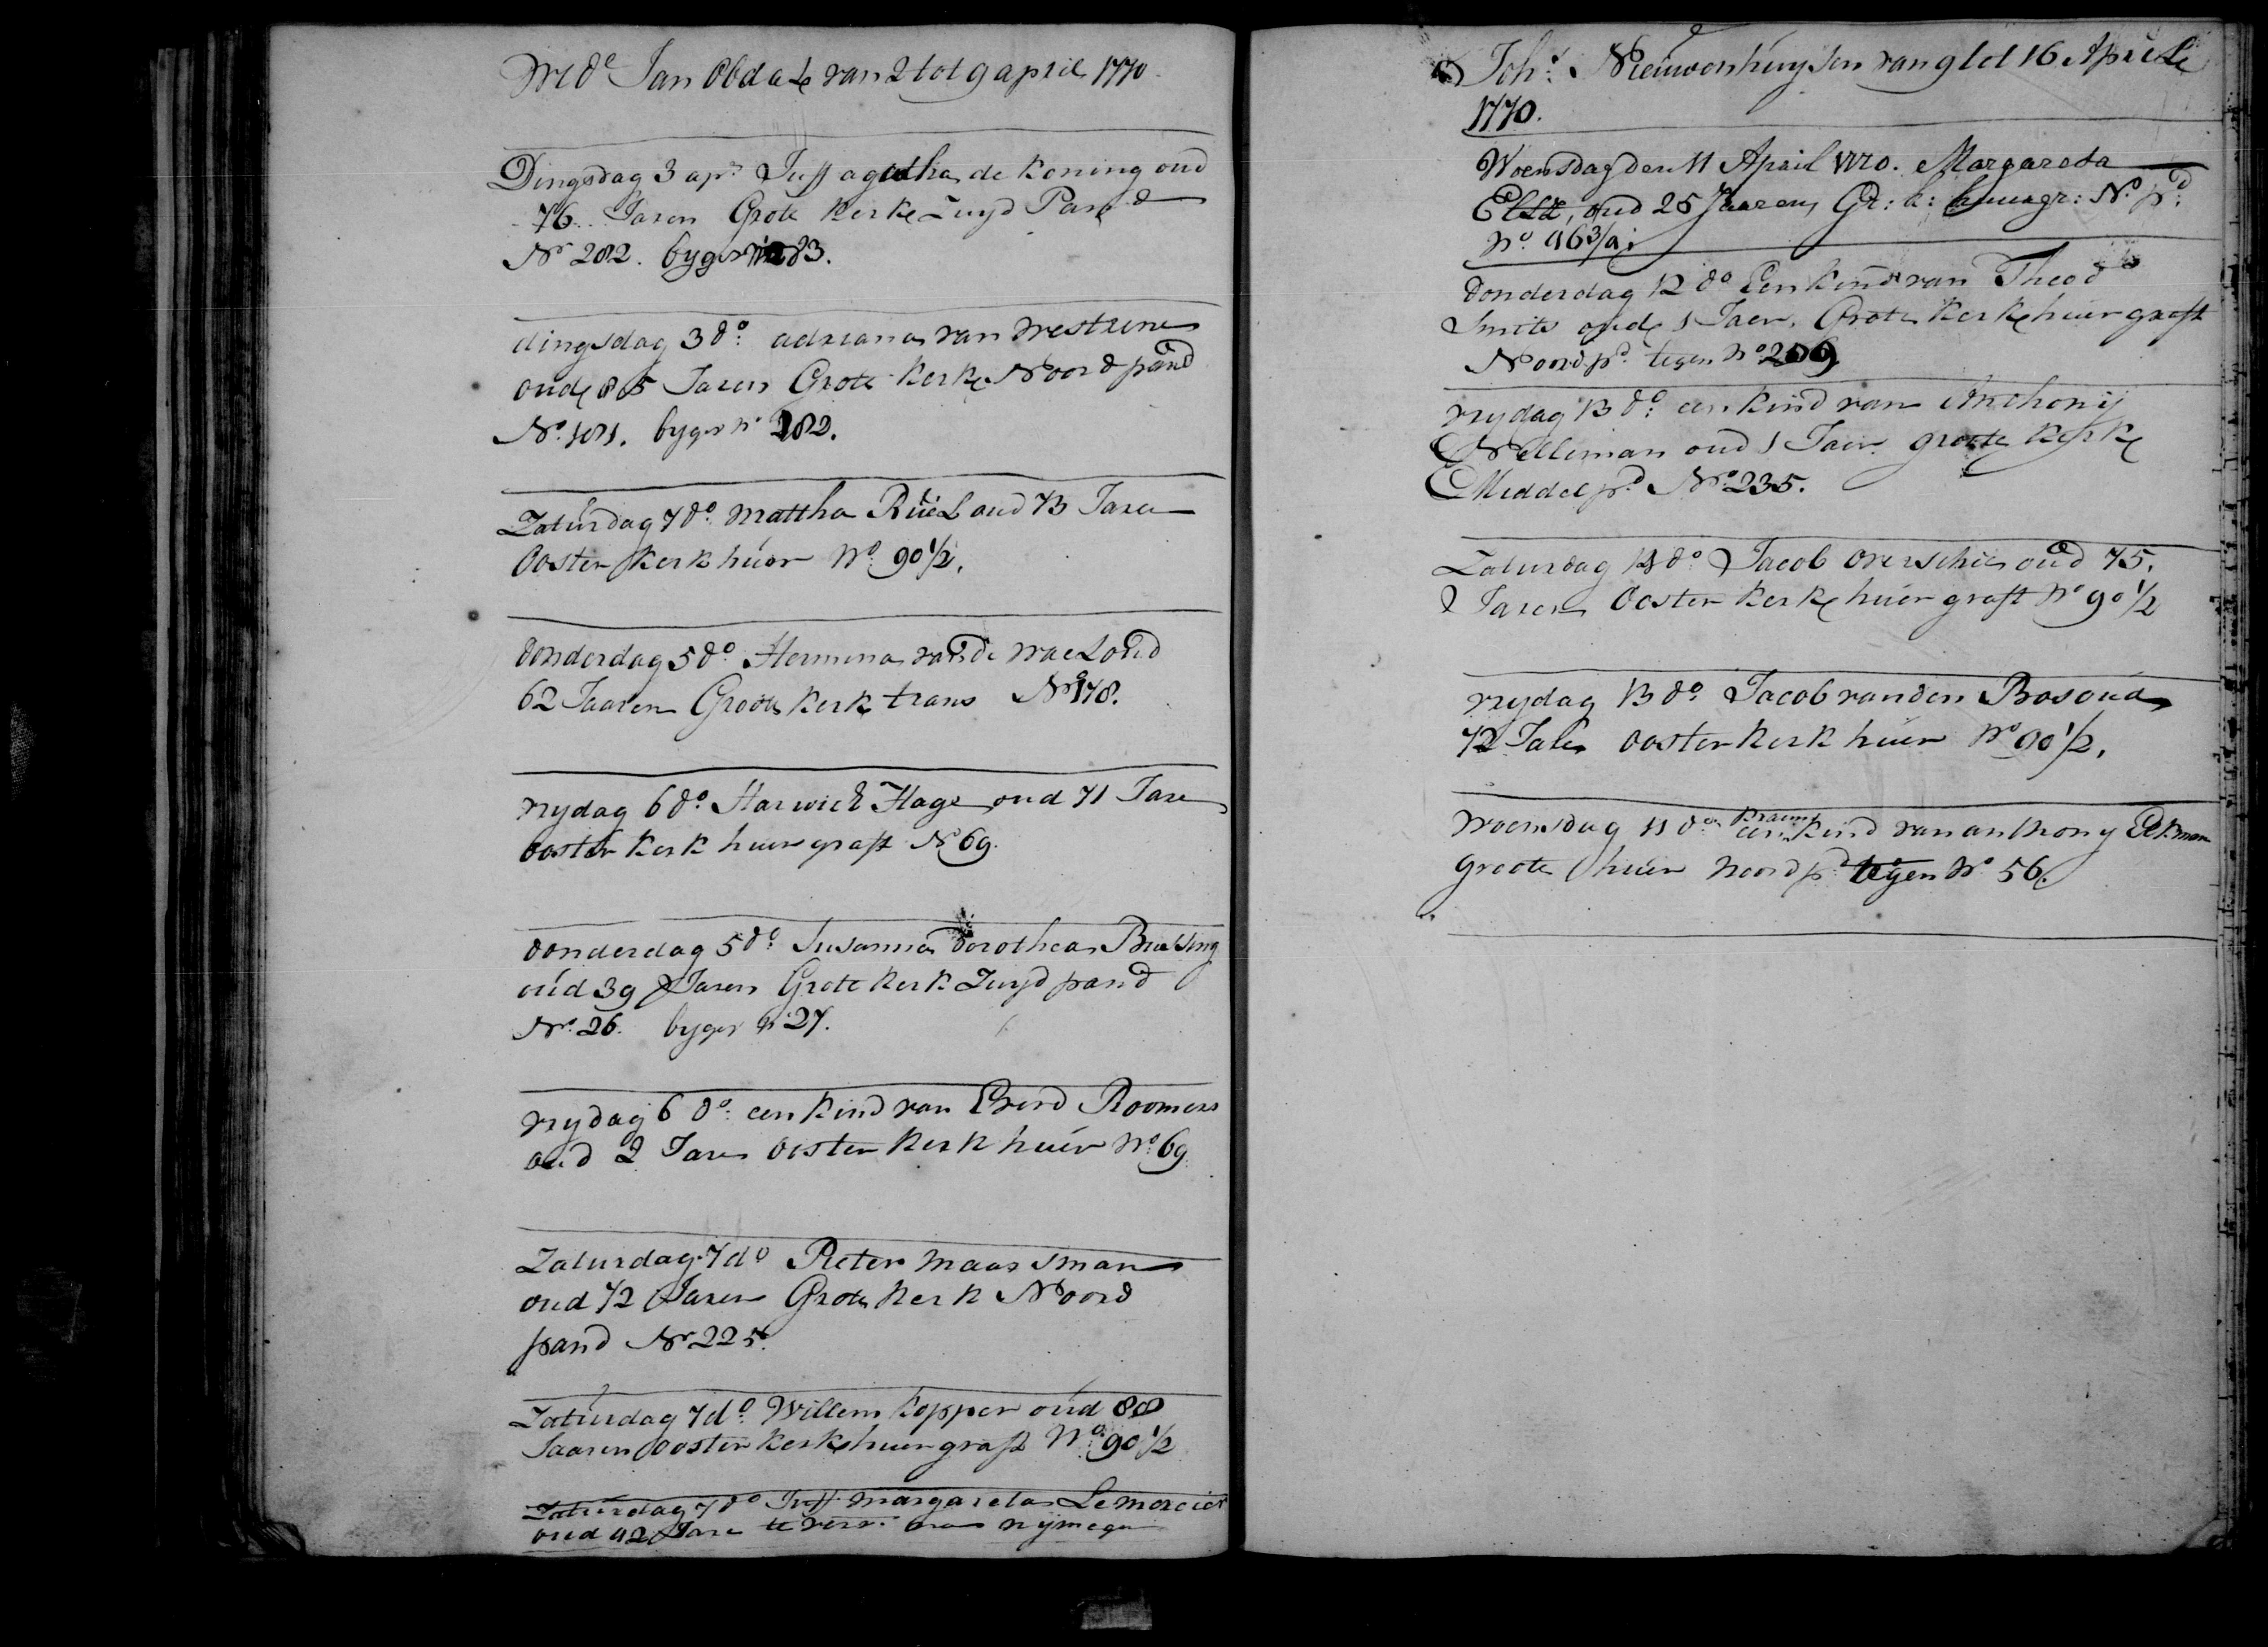 Wede Jan Obdale van 2 tot 9 april 1770
Dingsdag 3 apr: Juff agatha de Koning oud
76 Jaren Grote Kerke Zuyd Pand
No 282. byges no 283.
dingsdag 3 do: adriana van Westrene
oude 85 Jaren Grote Kerke Noord pand
No. 181. byges no 182.
Zaturdag 7 do: Mattha Rüel oud 73 Jaren
Ooster Kerk huer No 90½.
donderdag 5 do: Hermina van de Wael oud
62 Jaaren Groote Kerk trans No 178.
vrydag 6 do: Harwich Hage oud 71 Jare
ooster Kerk huer graft No 69.
donderdag 5 do: Susanna dorothea
oud 39 Jaren Grote Kerk Zuyd pand
No. 26. byges no 27.
vrydag 6 do: een kind van Everd Roomers
oud 2 Jaren Ooster Kerk huer No 69
Zaturdag 7 do Pieter Maassman
oud 72 Jaren Grote Kerk Noord
pand No 225.
Zaturdag 7 do: Willem Kopper oud 88
Jaaren ooster Kerke huer graft No. 90½
Zaturdag 7 do Juff margareta Lemercier
oud 42 Jare te verv: na nijmegen
Joh: Nieuwenhuysen van 9 tot 16 April
1770.
Woensdag den 11 April 1770. Margareta
oud 25 Jaaren, Gr: k: huurgr: N: pd:
No 46¾:
donderdag 12 do Een kind van Theod
Smits oude 1 Jaer, Grote Kerke huer graft
Noord pd: tegen No 269
vrydag 13 do: een kind van Anthonij
Nelleman oud 1 Jaer groote Kerke
Middel pd No: 235.
Zaturdag 14 do: Jacob Overschie oud 75.
Jaren Ooster Kerke huer graft No 90½
vrydag 13 do: Jacob van den Bos oud
72 Jaren ooster Kerk huer No 90½.
woensdag 11 do: een kraam kind van anthony Ekman
groote huer Noord pd: tegen No 56.